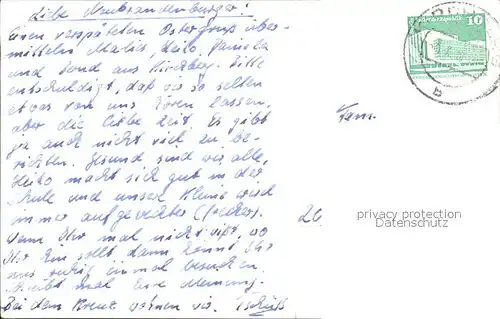 Liebe Neubrandenburger!
Einen verspäteten Ostergruß über-
mitteln Heiko,
und aus Bitte
entschuldigt, daß wir so selten
etwas von uns hören lassen,
aber die liebe Zeit. Es gibt
ja auch nicht viel zu be-
richten. Gesund sind wir alle,
Heiko macht sich gut in der
Schule und unser Kleine wird
immer aufgeweckter (frecher).
Wenn Ihr mal nicht wißt, wo
Ihr hin sollt dann könnt Ihr
uns ruhig einmal besuchen.
Schreibt mal Eure Meinung.
Bei dem Kreuz wohnen wir. Tschüß
Fam.
10
privacy protection
Datenschutz